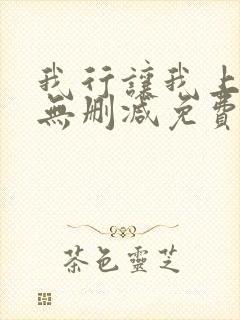 我行讓我上
無刪減免費
茶色靈芝